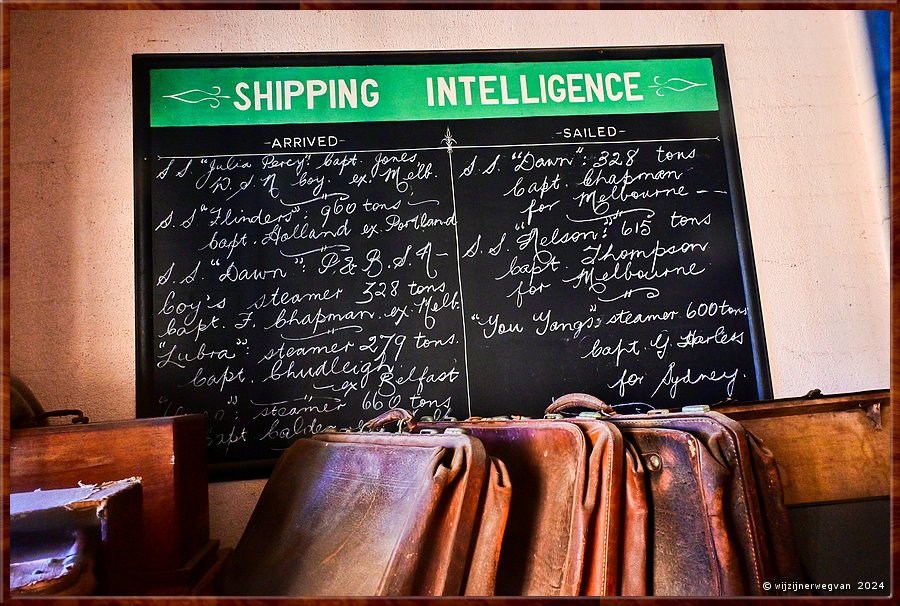 SHIPPING INTELLIGENCE
-ARRIVED-
S.S. "Julia Percy": Capt. Jones,
W. S. N Coy. ex. Melb.
S.S "Flinders": 960 tons
Capt. Holland ex Portland
S.S. "Dawn": P. & B. S. N-
Coy's steamer 328 tons
Capt. F. Chapman ex. Melb.
"Lubra": steamer 279 tons.
Capt. Chudleigh
ex Belfast
steamer 660 tons
Capt
-SAILED-
S.S. "Dawn": 328 tons
Capt. Chapman
for Melbourne
S.S. "Nelson": 615 tons
Capt Thompson
for Melbourne
"You Yangs": steamer 600 tons
Capt. G Harless
for Sydney.
© wijzijnerwegvan 2024